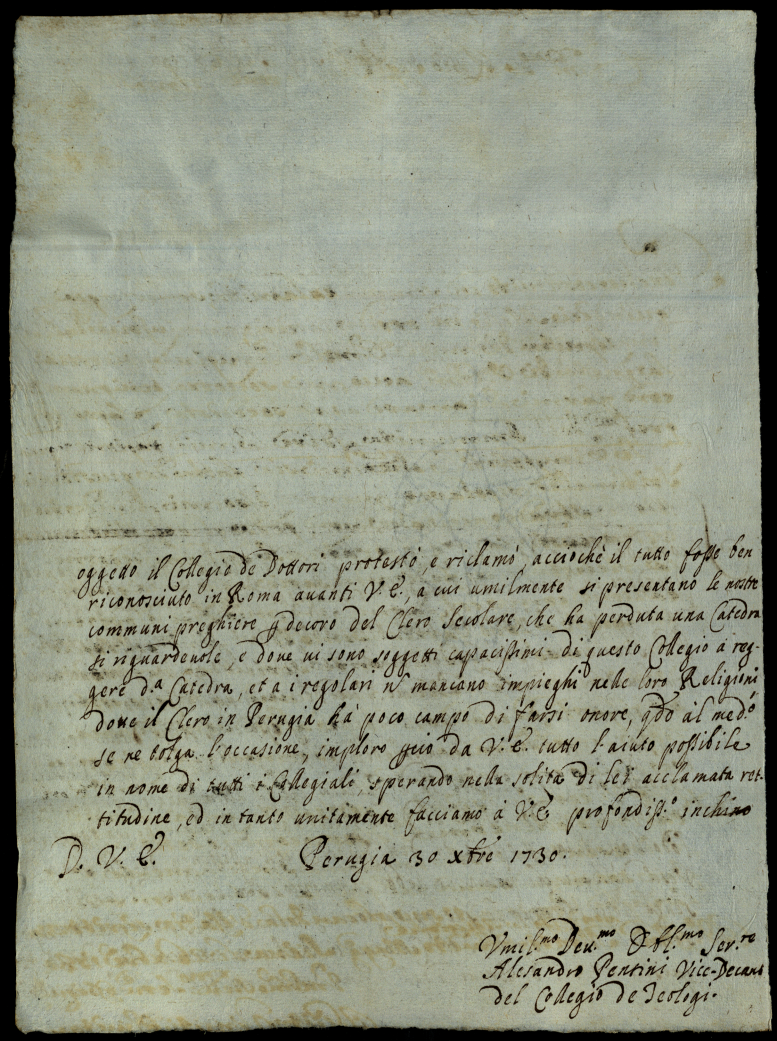 oggetto il Collegio de Dottori protestò, e riclamò, acciochè il tutto fosse ben
riconosciuto in Roma auanti V. E., a cui umilmente si presentano le nostre
communi preghiere p decoro del Clero Secolare, che ha perduta una Catedra
si riguardeuole, e doue ui sono soggetti capacissimi di questo Collegio à reg-
gere d.a Catedra, et a i regolari nō mancano impieghi nelle loro Religioni
doue il Clero in Perugia hà poco campo di farsi onore, qdo al med.o
se ne tolga l'occasione, imploro pciò da V. E. tutto l'aiuto possibile
in nome di tutti i Collegiali, sperando nella solita di lei acclamata ret-
titudine, ed in tanto unitamente facciamo à V. E. profondiss.o inchino
D. V. E. Perugia 30 Xbre 1730.
Vmil.mo Deu.mo Obl.mo Ser.re
Alesandro Pentini Vice-Decano
del Collegio de Teologi.